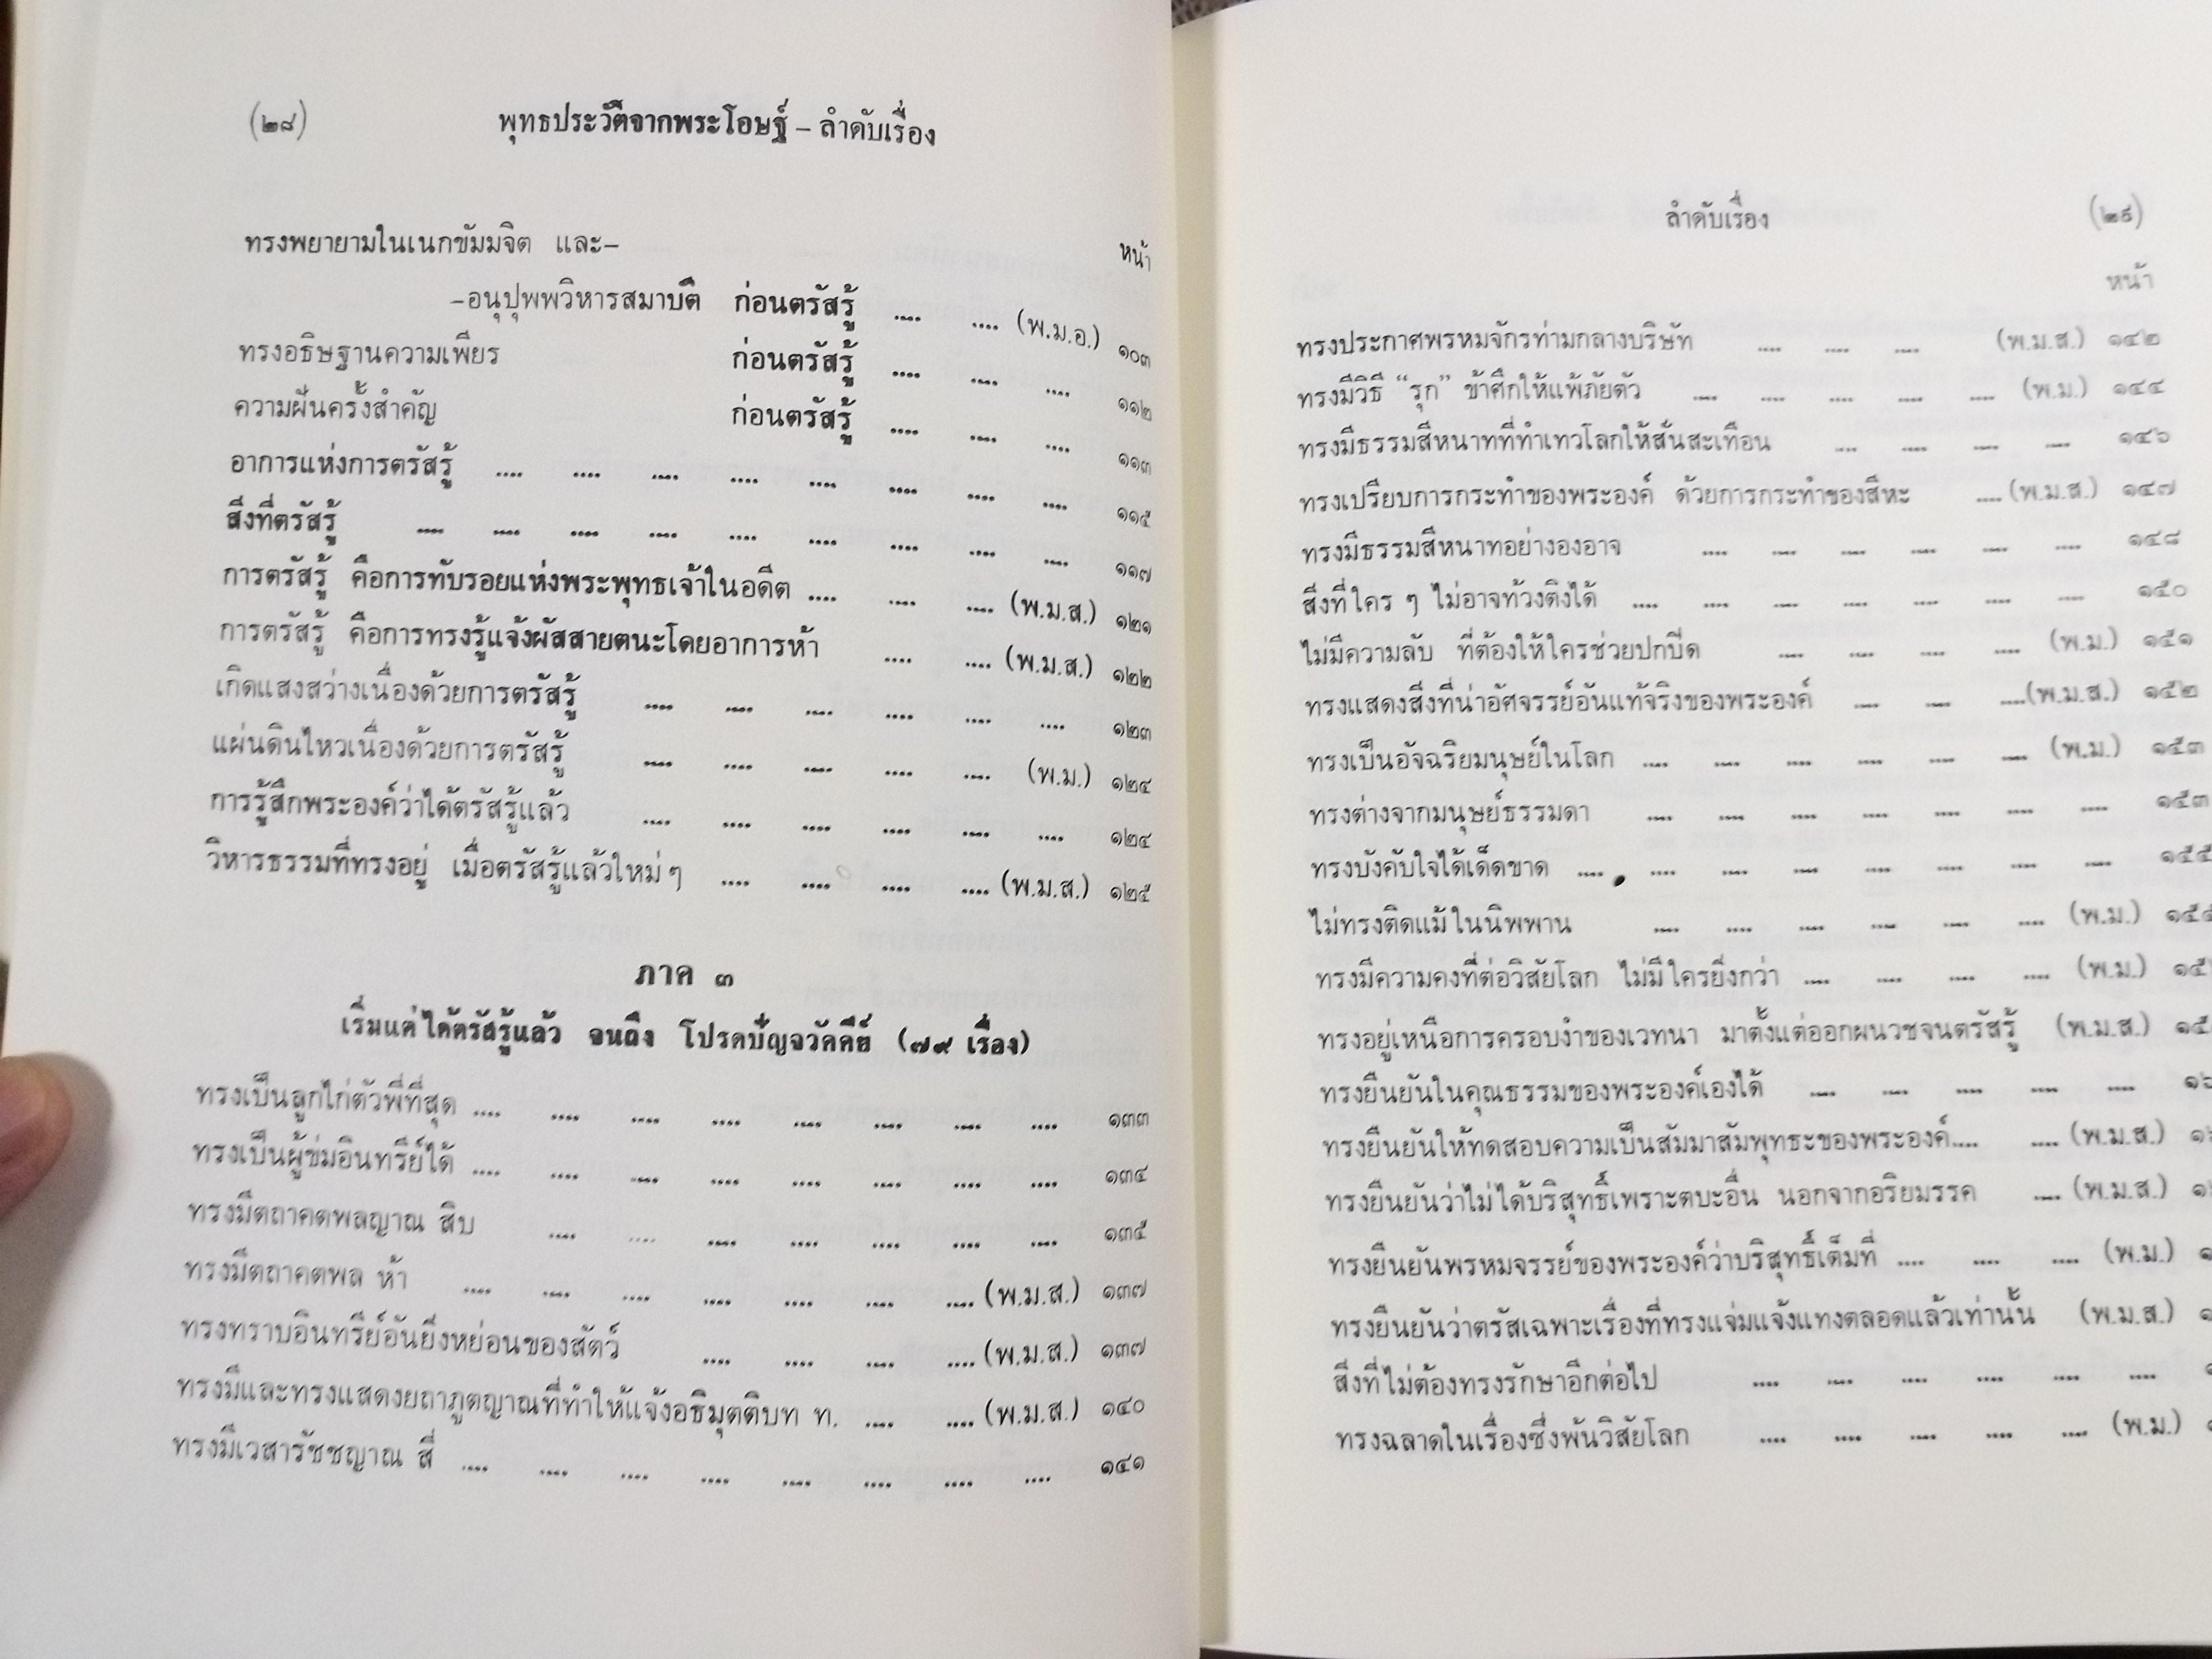 (๒๘) พุทธประวัติจากพระโอษฐ์ – ลำดับเรื่อง
หน้า
ทรงพยายามในเนกขัมมจิต และ–
–อนุปุพพวิหารสมาบัติ ก่อนตรัสรู้ .... .... (พ.ม.อ.) ๑๐๓
ทรงอธิษฐานความเพียร ก่อนตรัสรู้ .... .... .... ๑๑๒
ความฝันครั้งสำคัญ ก่อนตรัสรู้ .... .... .... ๑๑๓
อาการแห่งการตรัสรู้ .... .... .... .... .... .... .... .... ๑๑๕
สิ่งที่ตรัสรู้ .... .... .... .... .... .... .... .... .... ๑๑๗
การตรัสรู้ คือการทับรอยแห่งพระพุทธเจ้าในอดีต .... .... .... (พ.ม.ส.) ๑๒๑
การตรัสรู้ คือการทรงรู้แจ้งผัสสายตนะโดยอาการห้า .... .... (พ.ม.ส.) ๑๒๒
เกิดแสงสว่างเนื่องด้วยการตรัสรู้ .... .... .... .... .... .... ๑๒๓
แผ่นดินไหวเนื่องด้วยการตรัสรู้ .... .... .... .... .... (พ.ม.) ๑๒๔
การรู้สึกพระองค์ว่าได้ตรัสรู้แล้ว .... .... .... .... .... .... ๑๒๔
วิหารธรรมที่ทรงอยู่ เมื่อตรัสรู้แล้วใหม่ ๆ .... .... .... .... (พ.ม.ส.) ๑๒๕
ภาค ๓
เริ่มแต่ได้ตรัสรู้แล้ว จนถึง โปรดปัญจวัคคีย์ (๗๙ เรื่อง)
ทรงเป็นลูกไก่ตัวพี่ที่สุด .... .... .... .... .... .... .... .... ๑๓๓
ทรงเป็นผู้ข่มอินทรีย์ได้ .... .... .... .... .... .... .... .... ๑๓๔
ทรงมีตถาคตพลญาณ สิบ .... .... .... .... .... .... .... ๑๓๕
ทรงมีตถาคตพล ห้า .... .... .... .... .... .... .... (พ.ม.ส.) ๑๓๗
ทรงทราบอินทรีย์อันยิ่งหย่อนของสัตว์ .... .... .... .... (พ.ม.ส.) ๑๓๗
ทรงมีและทรงแสดงยถาภูตญาณที่ทำให้แจ้งอธิมุตติบท ท. .... .... (พ.ม.ส.) ๑๔๐
ทรงมีเวสารัชชญาณ สี่ .... .... .... .... .... .... .... .... ๑๔๑
ลำดับเรื่อง (๒๙)
หน้า
ทรงประกาศพรหมจักรท่ามกลางบริษัท .... .... .... (พ.ม.ส.) ๑๔๒
ทรงมีวิธี “รุก” ข้าศึกให้แพ้ภัยตัว .... .... .... .... .... (พ.ม.) ๑๔๔
ทรงมีธรรมสีหนาทที่ทำเทวโลกให้สั่นสะเทือน .... .... .... .... ๑๔๖
ทรงเปรียบการกระทำของพระองค์ ด้วยการกระทำของสีหะ .... (พ.ม.ส.) ๑๔๗
ทรงมีธรรมสีหนาทอย่างองอาจ .... .... .... .... .... .... ๑๔๘
สิ่งที่ใคร ๆ ไม่อาจท้วงติงได้ .... .... .... .... .... .... .... ๑๕๐
ไม่มีความลับ ที่ต้องให้ใครช่วยปกปิด .... .... .... .... (พ.ม.) ๑๕๑
ทรงแสดงสิ่งที่น่าอัศจรรย์อันแท้จริงของพระองค์ .... .... .... (พ.ม.ส.) ๑๕๒
ทรงเป็นอัจฉริยมนุษย์ในโลก .... .... .... .... .... .... (พ.ม.) ๑๕๓
ทรงต่างจากมนุษย์ธรรมดา .... .... .... .... .... .... .... ๑๕๓
ทรงบังคับใจได้เด็ดขาด .... .... .... .... .... .... .... .... ๑๕๕
ไม่ทรงติดแม้ในนิพพาน .... .... .... .... .... .... (พ.ม.)
ทรงมีความคงที่ต่อวิสัยโลก ไม่มีใครยิ่งกว่า .... .... .... .... (พ.ม.)
ทรงอยู่เหนือการครอบงำของเวทนา มาตั้งแต่ออกผนวชจนตรัสรู้ (พ.ม.ส.)
ทรงยืนยันในคุณธรรมของพระองค์เองได้ .... .... .... .... ....
ทรงยืนยันให้ทดสอบความเป็นสัมมาสัมพุทธะของพระองค์.... .... (พ.ม.ส.)
ทรงยืนยันว่าไม่ได้บริสุทธิ์เพราะตบะอื่น นอกจากอริยมรรค .... (พ.ม.ส.)
ทรงยืนยันพรหมจรรย์ของพระองค์ว่าบริสุทธิ์เต็มที่ .... .... .... (พ.ม.)
ทรงยืนยันว่าตรัสเฉพาะเรื่องที่ทรงแจ่มแจ้งแทงตลอดแล้วเท่านั้น (พ.ม.ส.)
สิ่งที่ไม่ต้องทรงรักษาอีกต่อไป .... .... .... .... .... ....
ทรงฉลาดในเรื่องซึ่งพ้นวิสัยโลก .... .... .... .... .... (พ.ม.)